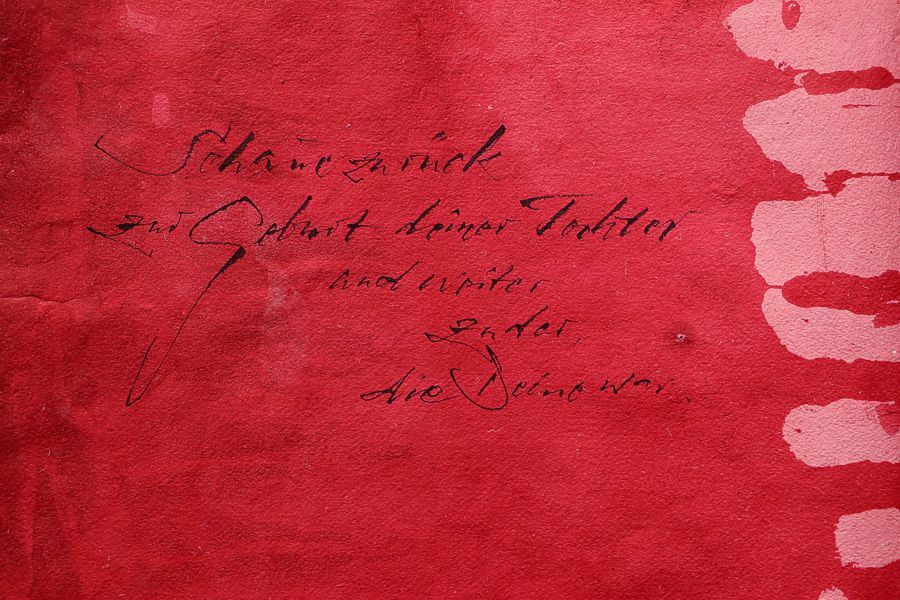 Schaue zurück
zur Geburt deiner Tochter
und weiter
zu der,
die Deine war.